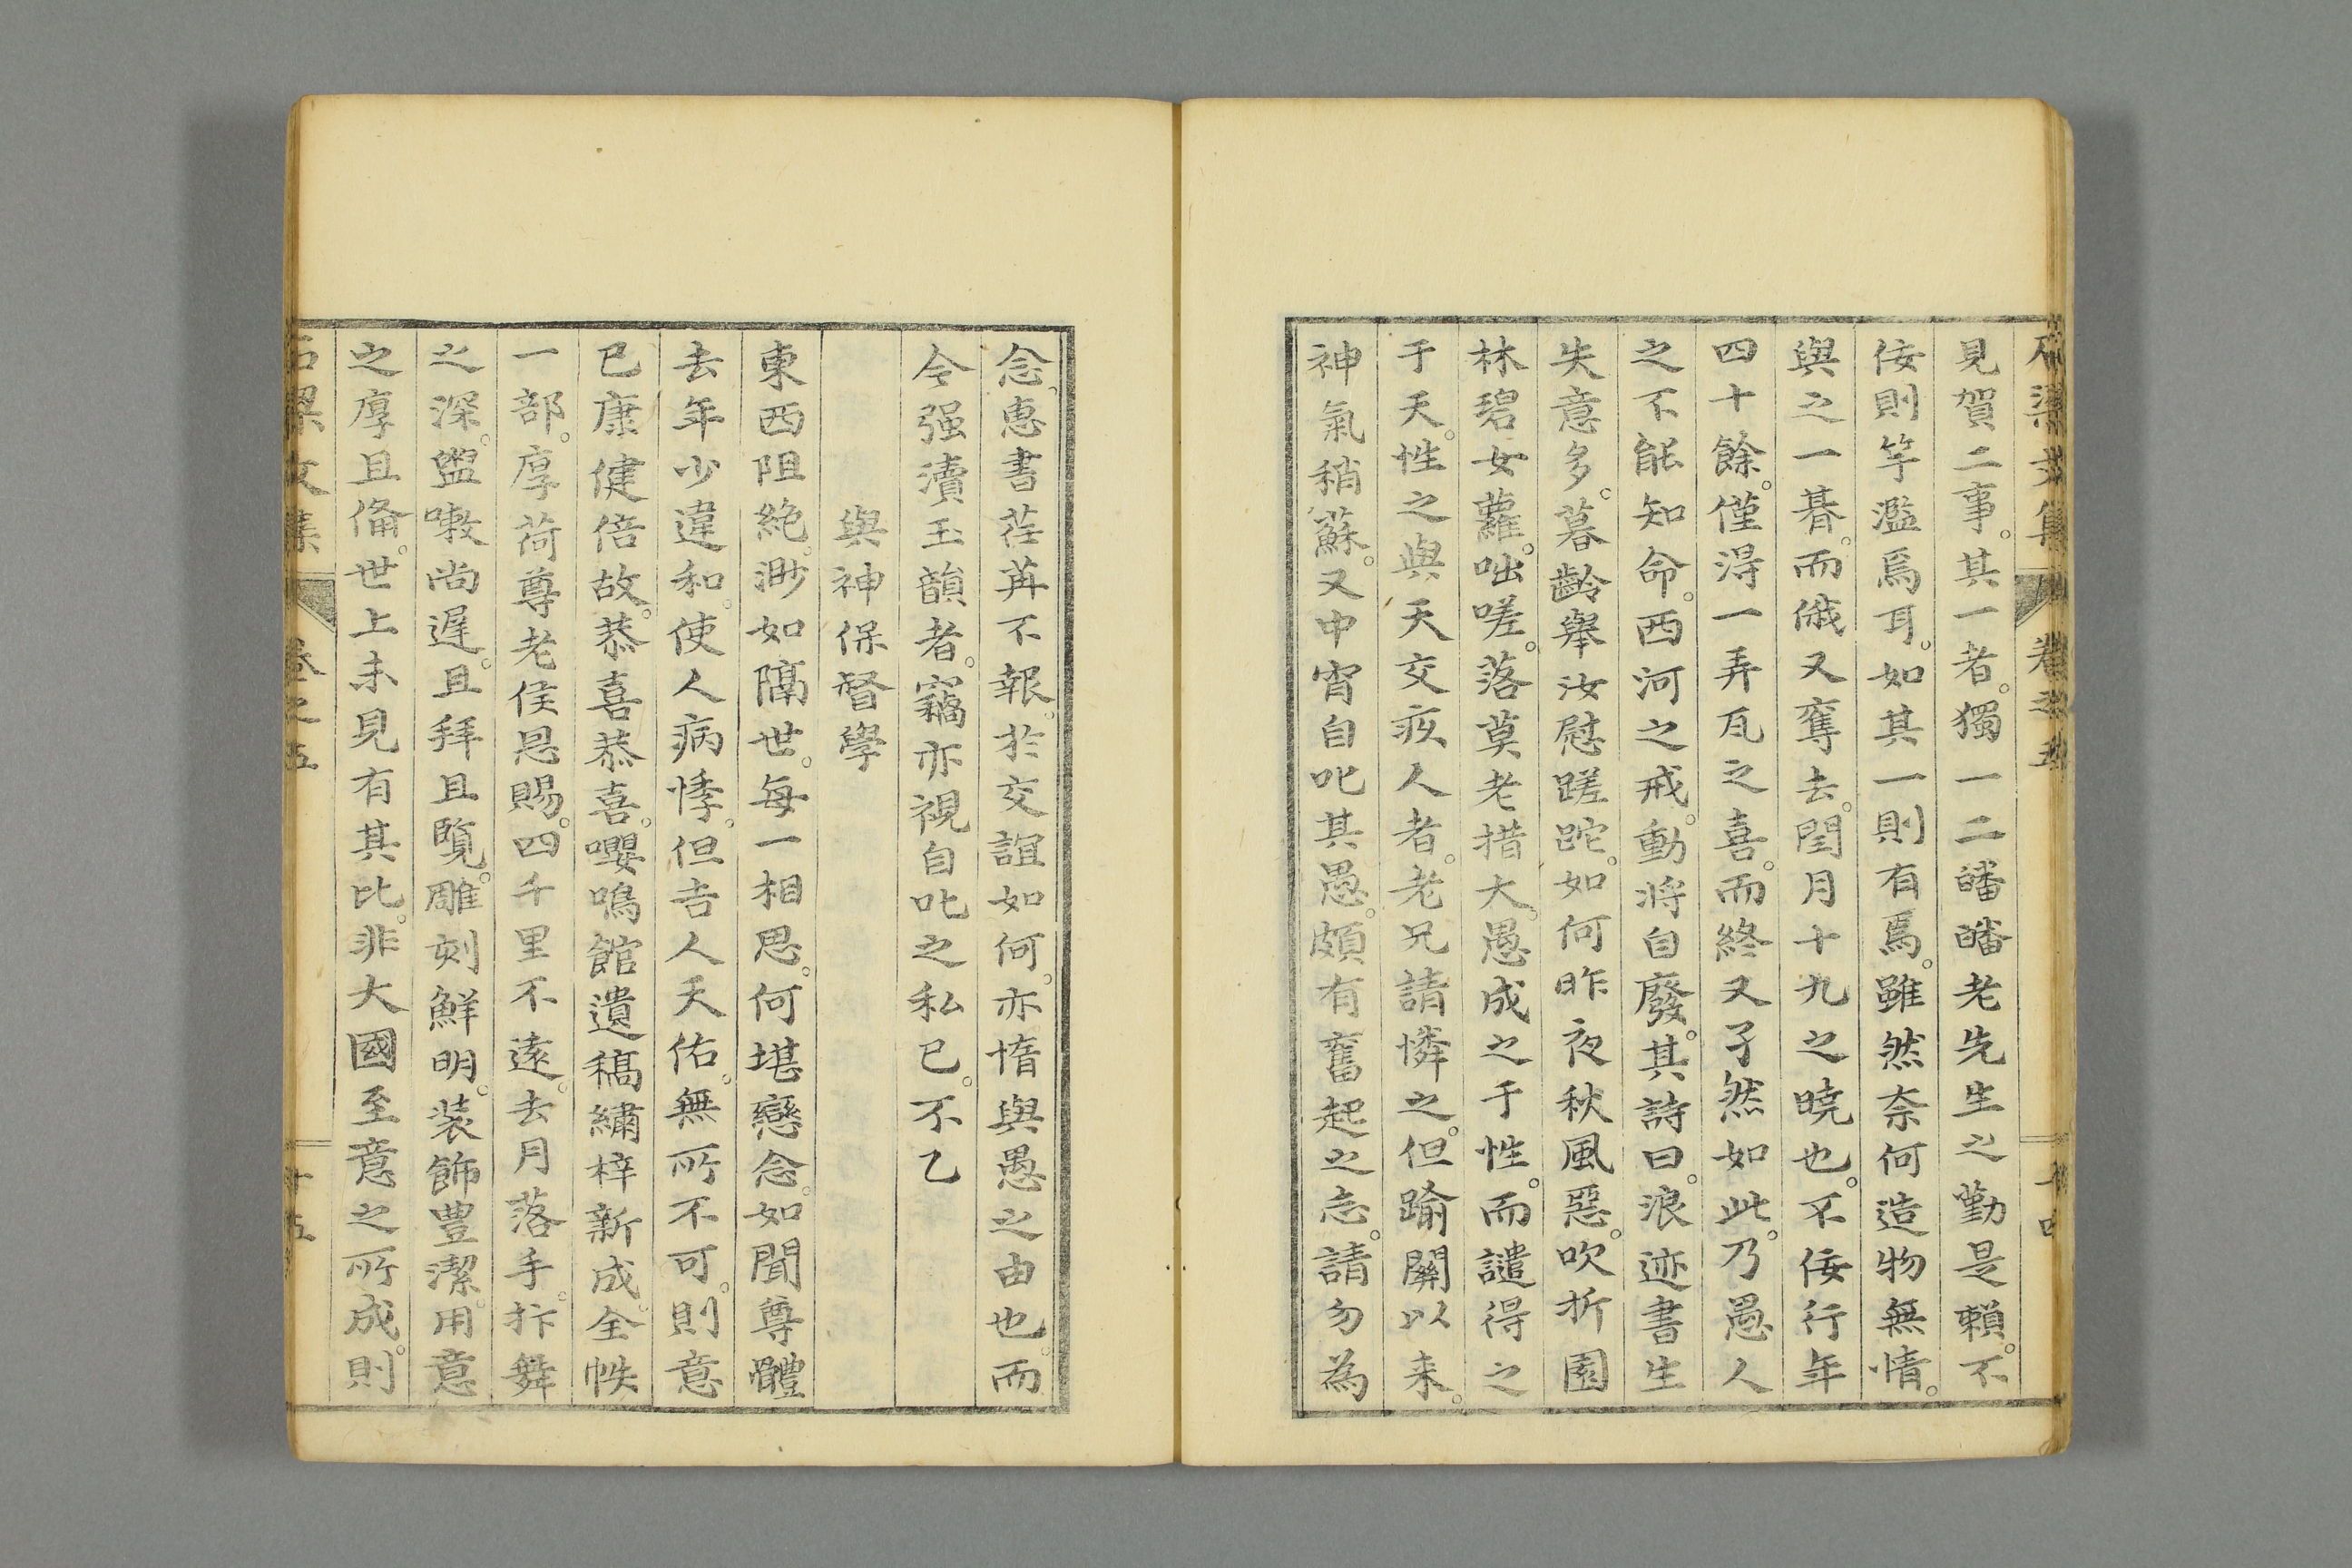 見賀二事。其一者。獨一二皤皤老先生之勤是賴。不
佞則竽濫焉耳。如其一則有焉。雖然奈何造物無情。
與之一朞。而俄又奪去。閏月十九之曉也。不佞行年
四十餘。僅得一弄瓦之喜。而終又孑然如此。乃愚人
之不能知命。西河之戒。動將自廢。其詩曰。浪迹書生
失意多。暮齡舉汝慰蹉跎。如何昨夜秋風惡。吹折園
林碧女蘿。咄嗟。落莫老措大。愚成之于性。而譴得之
于天。性之與天交疚人者。老兄請憐之。但踰關以来。
神氣稍蘇。又中宵自叱其愚。頗有奮起之志。請勿為
念。惠書荏苒不報。於交誼如何。亦惰與愚之由也。而
今强瀆玉韻者。竊亦視自叱之私已。不乙
與神保督學
東西阻絶。渺如隔世。每一相思。何堪戀念。如聞尊體
去年少違和。使人病悸。但吉人天佑。無所不可。則意
已康健倍故。恭喜恭喜。嚶鳴館遺稿繡梓新成。全帙
一部。厚荷尊老侯恩賜。四千里不遠。去月落手。抃舞
之深。盥嗽尚遲。且拜且覽。雕刻鮮明。装飾豊潔。用意
之厚且備。世上未見有其比。非大國至意之所成。則
卷之五